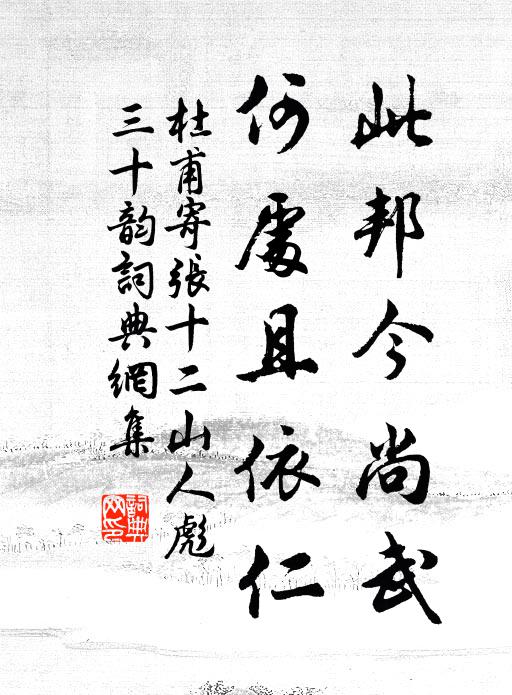 此邦今尚武
何處且依仁
杜甫寄張十二山人彪
三十韵詞典網集
詞典网印